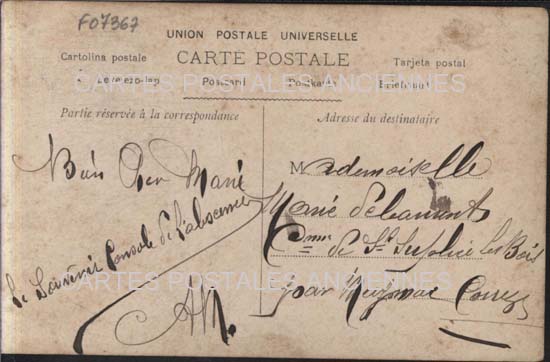 F07367
UNION POSTALE UNIVERSELLE
CARTE POSTALE
Cartolina postale
Tarjeta postal
Levelezo-lap Postcard Postkarte Briefkaart
CARTES POSTALES ANCIENNES
Partie réservée à la correspondance
Adresse du destinataire
Bien cher Marie
Le Souvenir Console de L'absence
AM.
Mademoiselle
Marie
Cne de St Sulpice les Bois
par Meymac Corrèze
CARTES POSTALES ANCIENNES